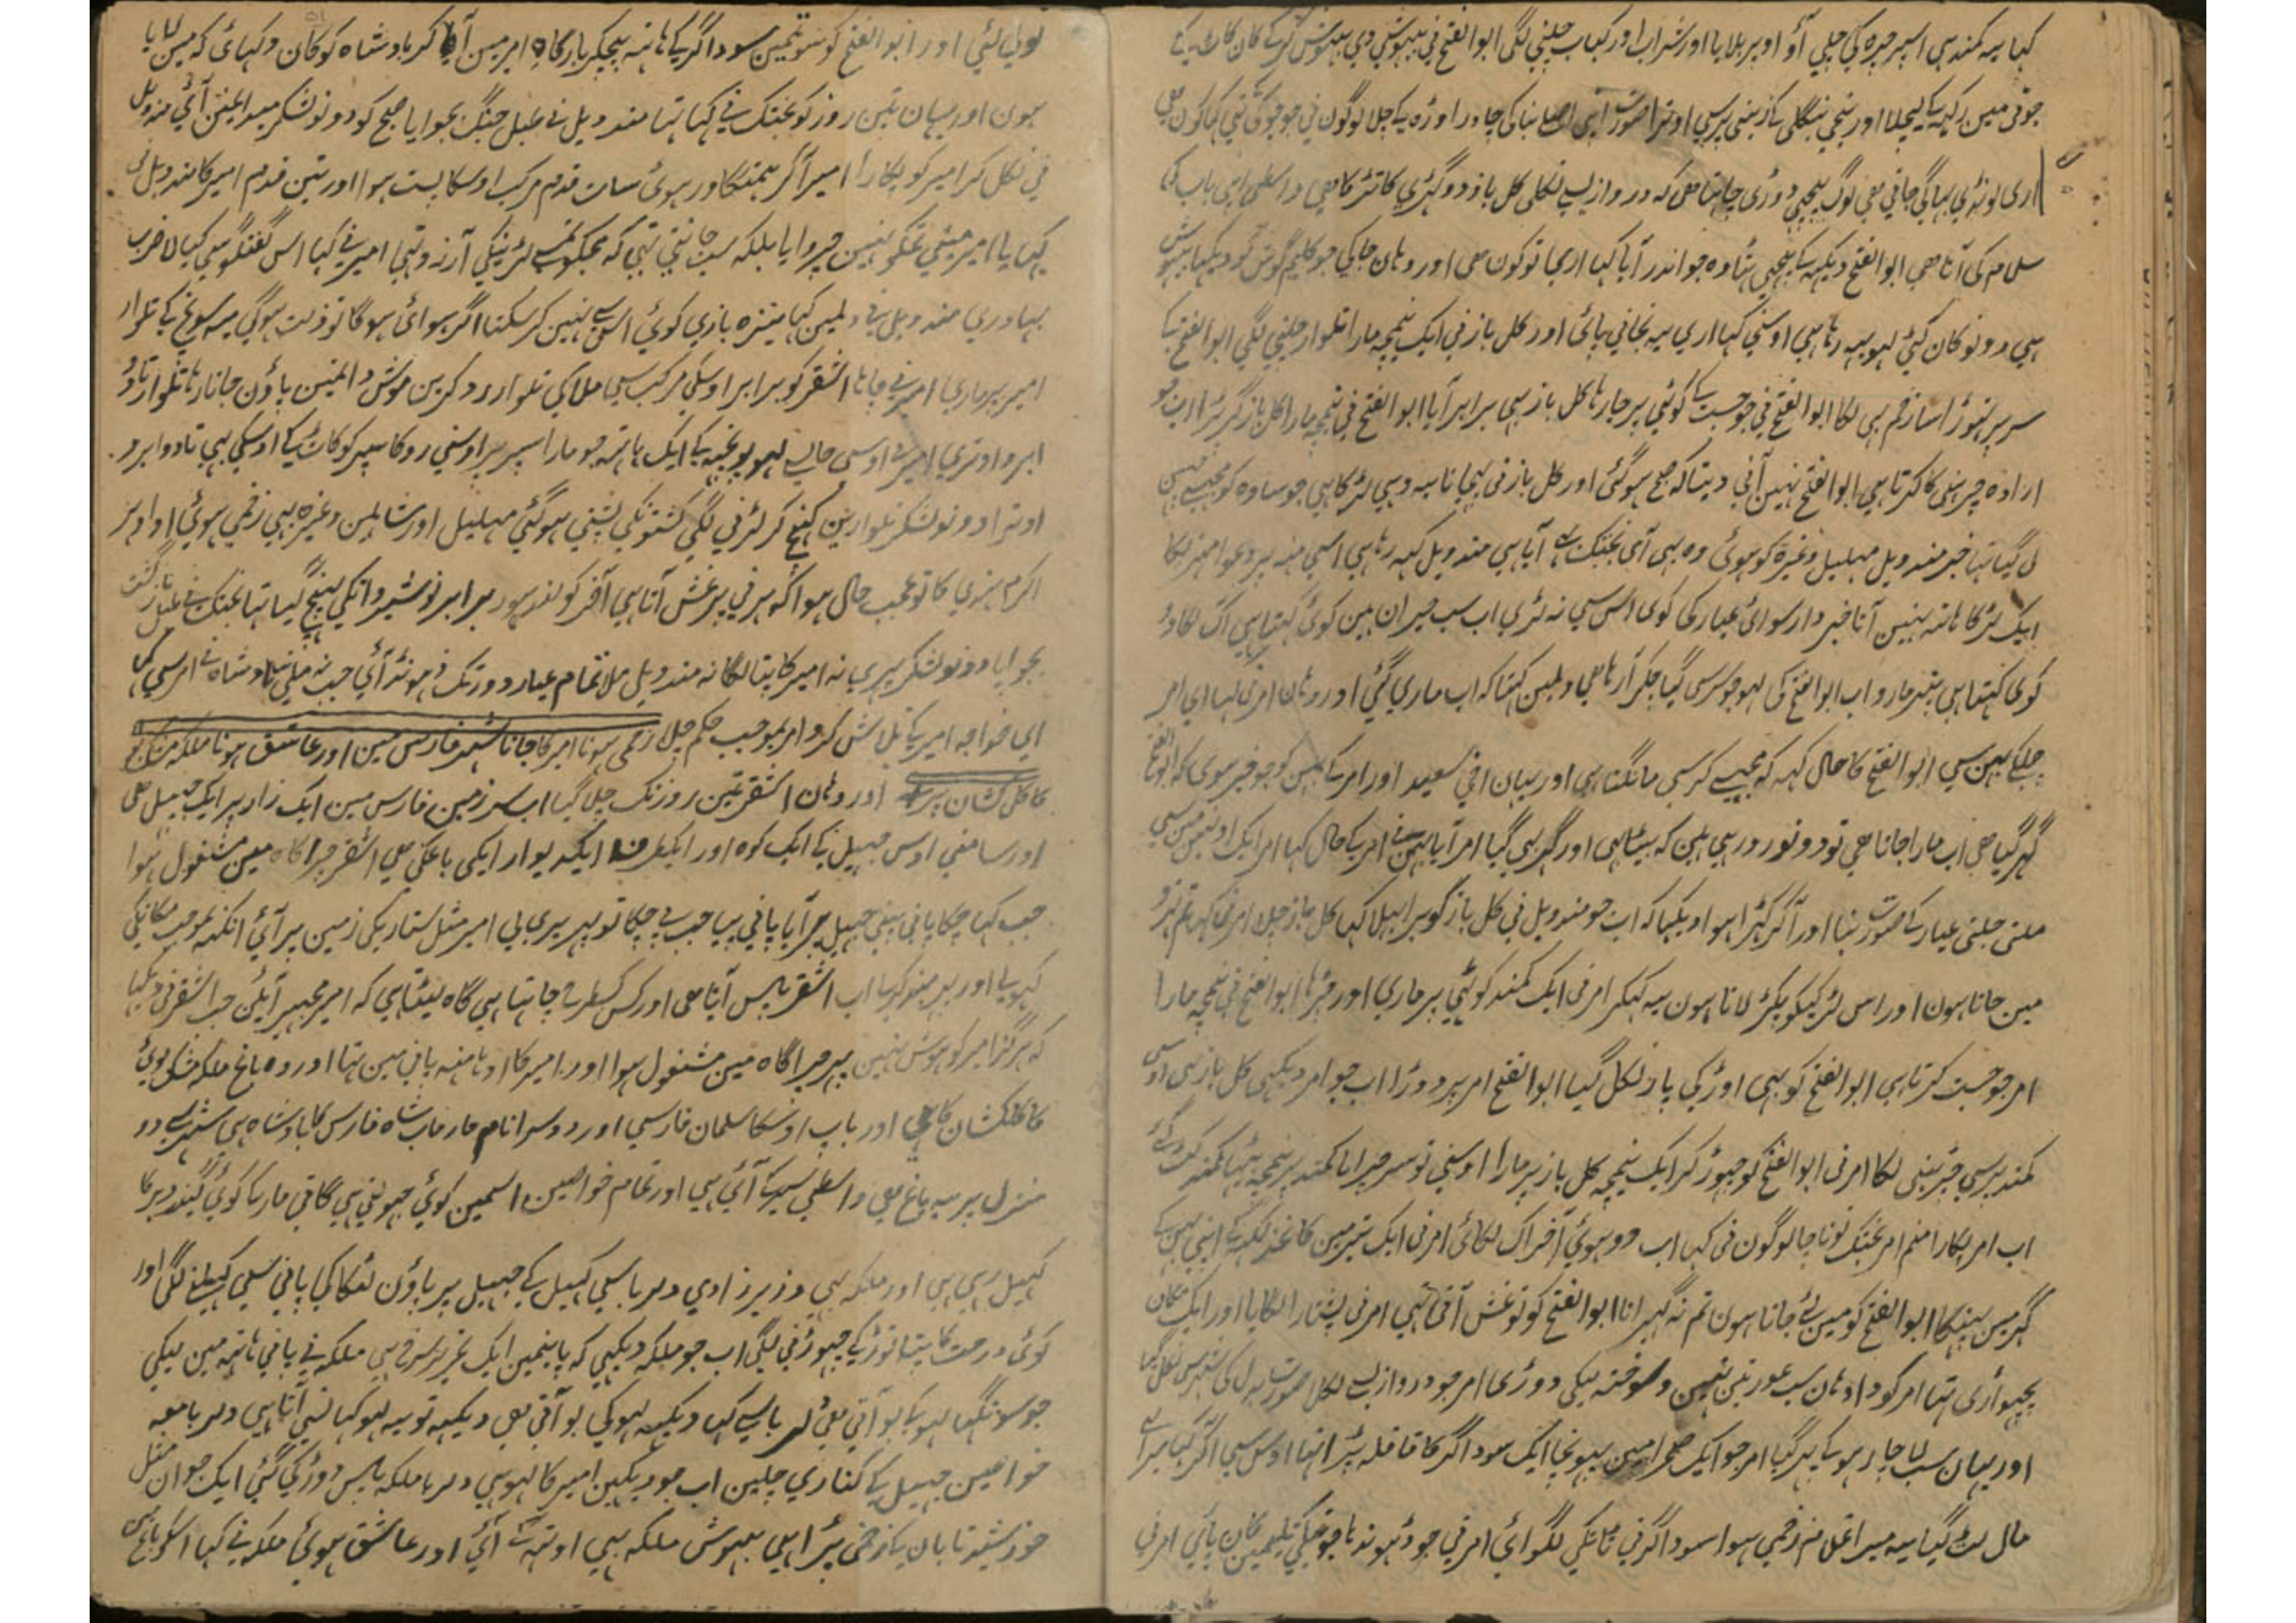 کہا یہ کمند ہی اسپر چڑہ کی چلی آؤ اوپر بلایا اور شراب اور کباب چلنی لگی ابوالفتح نی بیہوشی دی بیہوش کرکے کان کاٹ کے
جوتی مین رکہہ کے لیچلا اور نیچی بنگلی کی زینی پرسی اوترا صورت اپنی اصلی بنا کی چادر اوڑہ کے چلا لوگون نی جو چوکی کی تہی کہا کون ہی
اری لونڈی بہاگی جاتی ہی لوگ پیچہی دوڑی چاہتا ہی کہ دروازیسی نکلی کل باز دو گہڑی کا تڑکا ہی واسطی اپنی باپ کی
سلام کی آتا ہی ابوالفتح دیکہہ کے پیچہی ہٹا وہ جو اندر آیا کہا اری تو کون ہی اور وہان جاکی جو کلیم گوش کو دیکہا بیہوش
ہی دونو کان کٹی لہو بہہ رہا ہی اوسنی کہا اری یہ نجانی پائی اور کل باز نی ایک نیمچہ مارا تلوار چلنی لگی ابوالفتح کے
سر پر تہوڑا سا زخم بہی لگا ابوالفتح نی جو جست کی کوٹہی پر جا رہا کل باز بہی برابر آیا ابوالفتح نی نیمچہ مارا کل باز گر پڑا اب جو
ارادہ چڑہنی کا کرتا ہی ابوالفتح نہین آنی دیتا کہ صبح ہو گئی اور کل باز نی پہچانا یہ وہی لڑکا ہی جو سادہ کو مجہسی چہین
لی گیا تہا خبر مندویل مہلیل وغیرہ کو ہوئی وہ بہی آی بختک بہی آیا ہی مندویل کہہ رہا ہی اسی منہ پر دعوا مہتر کا
ایک لڑکا ہاتہ نہین آتا خبردار سوائی عیار کی کوی اس سی نہ لڑی اب سب حیران ہین کوئی کہتا ہی آگ لگا دو
کوی کہتا ہی پتہر مارو اب ابوالفتح کی لہو جو سر سی گیا چکر آ رہا ہی دلمین کہتا کہ اب ماری گئی اور وہان امر نی کہا ای امر
چلکے بہن سی ابوالفتح کا حال کہہ کہ مجہسی کرسی مانگتا ہی اور بیان اختی سعید اور امر کے بہن کو جو خبر ہوی کہ ابوالفتح
گہر گیا ہی اب مارا جاتا ہی تو دونو رو رہی ہین کہ بیٹا ہی اور گہر ہی گیا امر آیا بہن نی امر کے حال کہا امر ایک اونہین مین سی
ملنی جلنی عیار کے صورت بنا اور آ کر کہڑا ہوا دیکہا کہ اب جو مندویل نی کل باز کو برا بہلا کہا کل باز چلا امر نی کہا تم نہرو
مین جاتا ہون اور اس لڑکیکو پکڑ لاتا ہون یہ کہکر امر نی ایک کمند کوٹہی پر ماری اور چڑہا ابوالفتح نی نیمچہ مارا
امر جو جست کرتا ہی ابوالفتح کو بہی اوڑ کی پار نکل گیا ابوالفتح امر پر دوڑا اب جو امر دیکہی کل باز بہی اوسی
کمند پرسی چڑہنی لگا امر نی ابوالفتح کو چہوڑ کر ایک نیمچہ کل باز پر مارا اوسنی تو سر چورایا کمند پر نیمچہ پڑہا کمند کٹ گئی
اب امر پکارا منم امر بختک نونا چا لوگون نی کہا اب دو ہوئی آخر آگ لگائی امر نی ایک تیر مین کاغذ لکہہ کے اپنی بہن کے
گہر مین پہینکا ابوالفتح کو مین لئی جاتا ہون تم نہ گہبرانا ابوالفتح کو تو غش آئی تہی امر نی پشتارا لگایا اور ایک مکان
پچہواڑی تہا امر کودا وہان سب عورتین تہین وہ سوختہ لیکی دوڑی امر جو دروازیسی نکلا صورت بدل کی شہر سی نکل گیا
اور یہان سب لاچار ہو کے پہر گیا امر جو ایک صحرا مین پہونچا ایک سوداگر کا قافلہ پڑا تہا اوس سی آکر کہا میرا سب
مال لٹ گیا یہ میرا غلام زخمی ہوا سوداگر نی ٹانکی لگوائی امر نی جو ڈہونڈہا جو جنگی تلمین کان پائی امر نی
تولی لئی اور ابوالفتح کو سو تمنمین سوداگر کے ہاتہ بیچکر بارگاہ امیر مین آیا کر بادشاہ کو کان دکہائی کہ مین لایا
ہون اور یہان تین روز کو بختک نی کہا تہا مندویل نی طبل جنگ بجوایا صبح کو دونو لشکر میدانمین آئی مندویل
نی نکل کر امیر کو پکارا امیر آکر ہمتگاور ہوئی سات قدم مرکب اوسکا پست ہوا اور تین قدم امیر کا مندویل نی
کہا یا امیر مینی تمکو نہین چروایا بلکہ سب جانتی تہی کہ مجکو تمسے لڑنیکی آرزو تہی امیر نی کہا اس گفتگو سی کیا لا ضرب
بہادری مندویل نی دلمین کہا نیزہ بازی کوئی اس سی نہین کر سکتا اگر ہوائی ہوگا تو ذلت ہوگی یہ سونچ کے تلوار
امیر پر ماری امیر نی چاہا اشقر کو برابر اوسکی مرکب سی ملا کی تلوار رد کرین موش دانمین پاؤن جاتا رہا تلوار تا دو
ابرو اوتری امیر نی اوسی حالسی لہو پونچہہ کے ایک ہاتہ جو مارا اسپر پر اوسنی روکا سپر کو کاٹ کے اوسکی بہی تا دو ابرو
اوترا دونو لشکر تلوارین کہنچ کر لڑنی لگی کشتونکی پشتی ہو گئی مہلیل اور شاہلین وغیرہ بہی زخمی ہوئی اور اوہر
اکرم ہندی کا تو عجب حال ہوا کہ ہر نی پر غش آتا ہی آخر کو لندہور برابر نوشیروانکی پہنچ گیا تہا بختک نی طبل باز گشت
بجوایا دونو لشکر پہری نہ امیر کا پتا لگا نہ مندویل ملا تمام عیار دور تک ڈہونڈ آئی جب نہ ملی بادشاہ نی امر سی کہا
ای خواجہ امیر کے تلاش کرو امر بموجب حکم چلا زخمی ہونا امیر کا جانا شہر فارس مین اور عاشق ہونا ملکہ مشکبوی
کاکل کشان پر اور وہان اشقر تین روز تک چلا گیا اب سر زمین فارس مین ایک زاد پر ایک جہیل ہی
اور سامنی اوس جہیل کے ایک کوہ اور ایک طرف ایک دیوار ایکی باغکی ہی اشقر چراگاہ مین مشغول ہوا
جب کہا چکا پانی پینی جہیل پر آیا پانی پیا جب پی چکا تو پہر یری لی امیر مثل ستاریکی زمین پر آئی آنکہہ بموجب مکانکی
کہولی اور پہر بند کر لیا اب اشقر پاس آتا ہی اور کس کسطرح چاہتا ہی گاہ بیٹہتا ہی کہ امیر مجہپر آئین جب اشقر نی دیکہا
کہ ہرگز امیر کو ہوش نہین پہر چراگاہ مین مشغول ہوا اور امیر کا آدہا منہ پانی مین تہا اور وہ باغ ملکہ مشکبوی
کاکلکشان کا ہی اور باپ اوسکا سلمان فارسی اور دوسرا نام مارماب شاہ فارس کا بادشاہ ہی شہر سے دو
منزل پر یہ باغ ہی واسطی سیر کے آئی ہی اور تمام خواصین اسمین کوئی جہولتی ہی گاتی مار کے کوئی گیند دیر کا
کہیل رہی ہی اور ملکہ بہی وزیر زادی دلربا سی کہیل کے جہیل پر پاؤن لٹکا کی پانی سی کہیلنے لگی اور
کوئی درخت کا پتا توڑ کے چہوڑنی لگی اب جو ملکہ دیکہی کہ پانیمین ایک تحریر سرخ ہی ملکہ نی پانی ہاتہ مین لیکی
جو سونگہا لہو کی بو آتی ہی دلربا سی کہا دیکہہ لہو کی بو آتی ہی دیکہہ تو یہ لہو کہانسی آتا ہی دلربا معہ
خواصین جہیل کے کناری چلین اب جو دیکہین امیر کا لہو ہی دلربا ملکہ پاس دوڑ کی گئی ایک جوان مثل
خورشید تابان کے زخمی پڑا ہی بیہوش ملکہ بہی اوٹہہ کے آئی اور عاشق ہوئی ملکہ نی کہا اسکو باغ مین